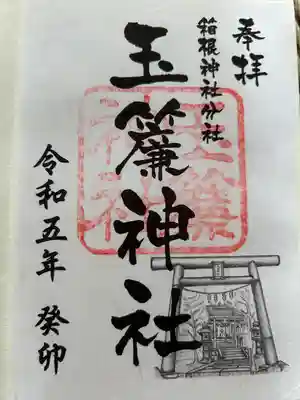 奉拝
箱根神社分社
玉簾神社
令和五年 癸卯
玉簾神社